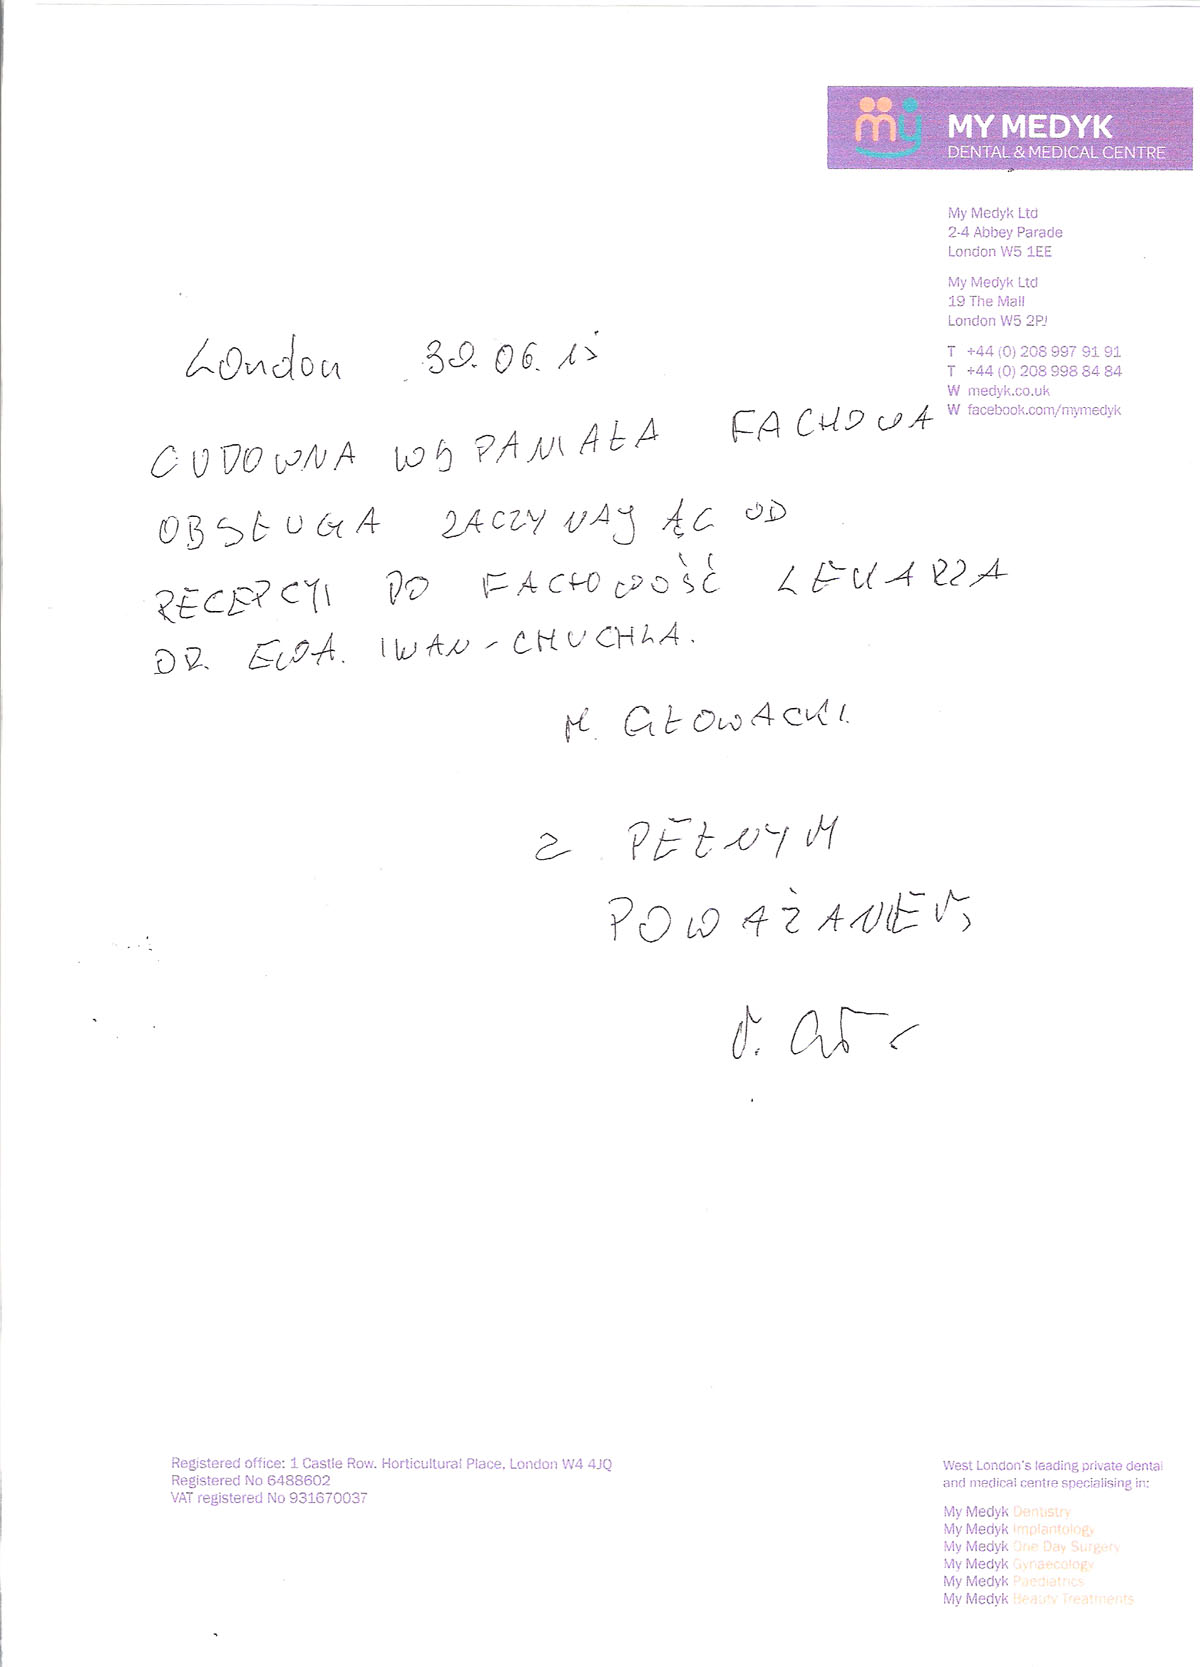 MY MEDYK
DENTAL & MEDICAL CENTRE
My Medyk Ltd
2-4 Abbey Parade
London W5 1EE
My Medyk Ltd
19 The Mall
London W5 2PJ
T +44 (0) 208 997 91 91
T +44 (0) 208 998 84 84
W medyk.co.uk
W facebook.com/mymedyk
London 30.06.15
CUDOWNA WSPANIAŁA FACHOWA
OBSŁUGA ZACZYNAJĄC OD
RECEPCJI DO FACHOWOŚĆ LEKARZA
DR. EWA. IWAN-CHUCHLA.
M. GŁOWACKI.
Z PEŁNYM
POWAŻANIEM,
Registered office: 1 Castle Row. Horticultural Place, London W4 4JQ
Registered No 6488602
VAT registered No 931670037
West London's leading private dental
and medical centre specialising in:
My Medyk Dentistry
My Medyk Implantology
My Medyk One Day Surgery
My Medyk Gynaecology
My Medyk Paediatrics
My Medyk Beauty Treatments